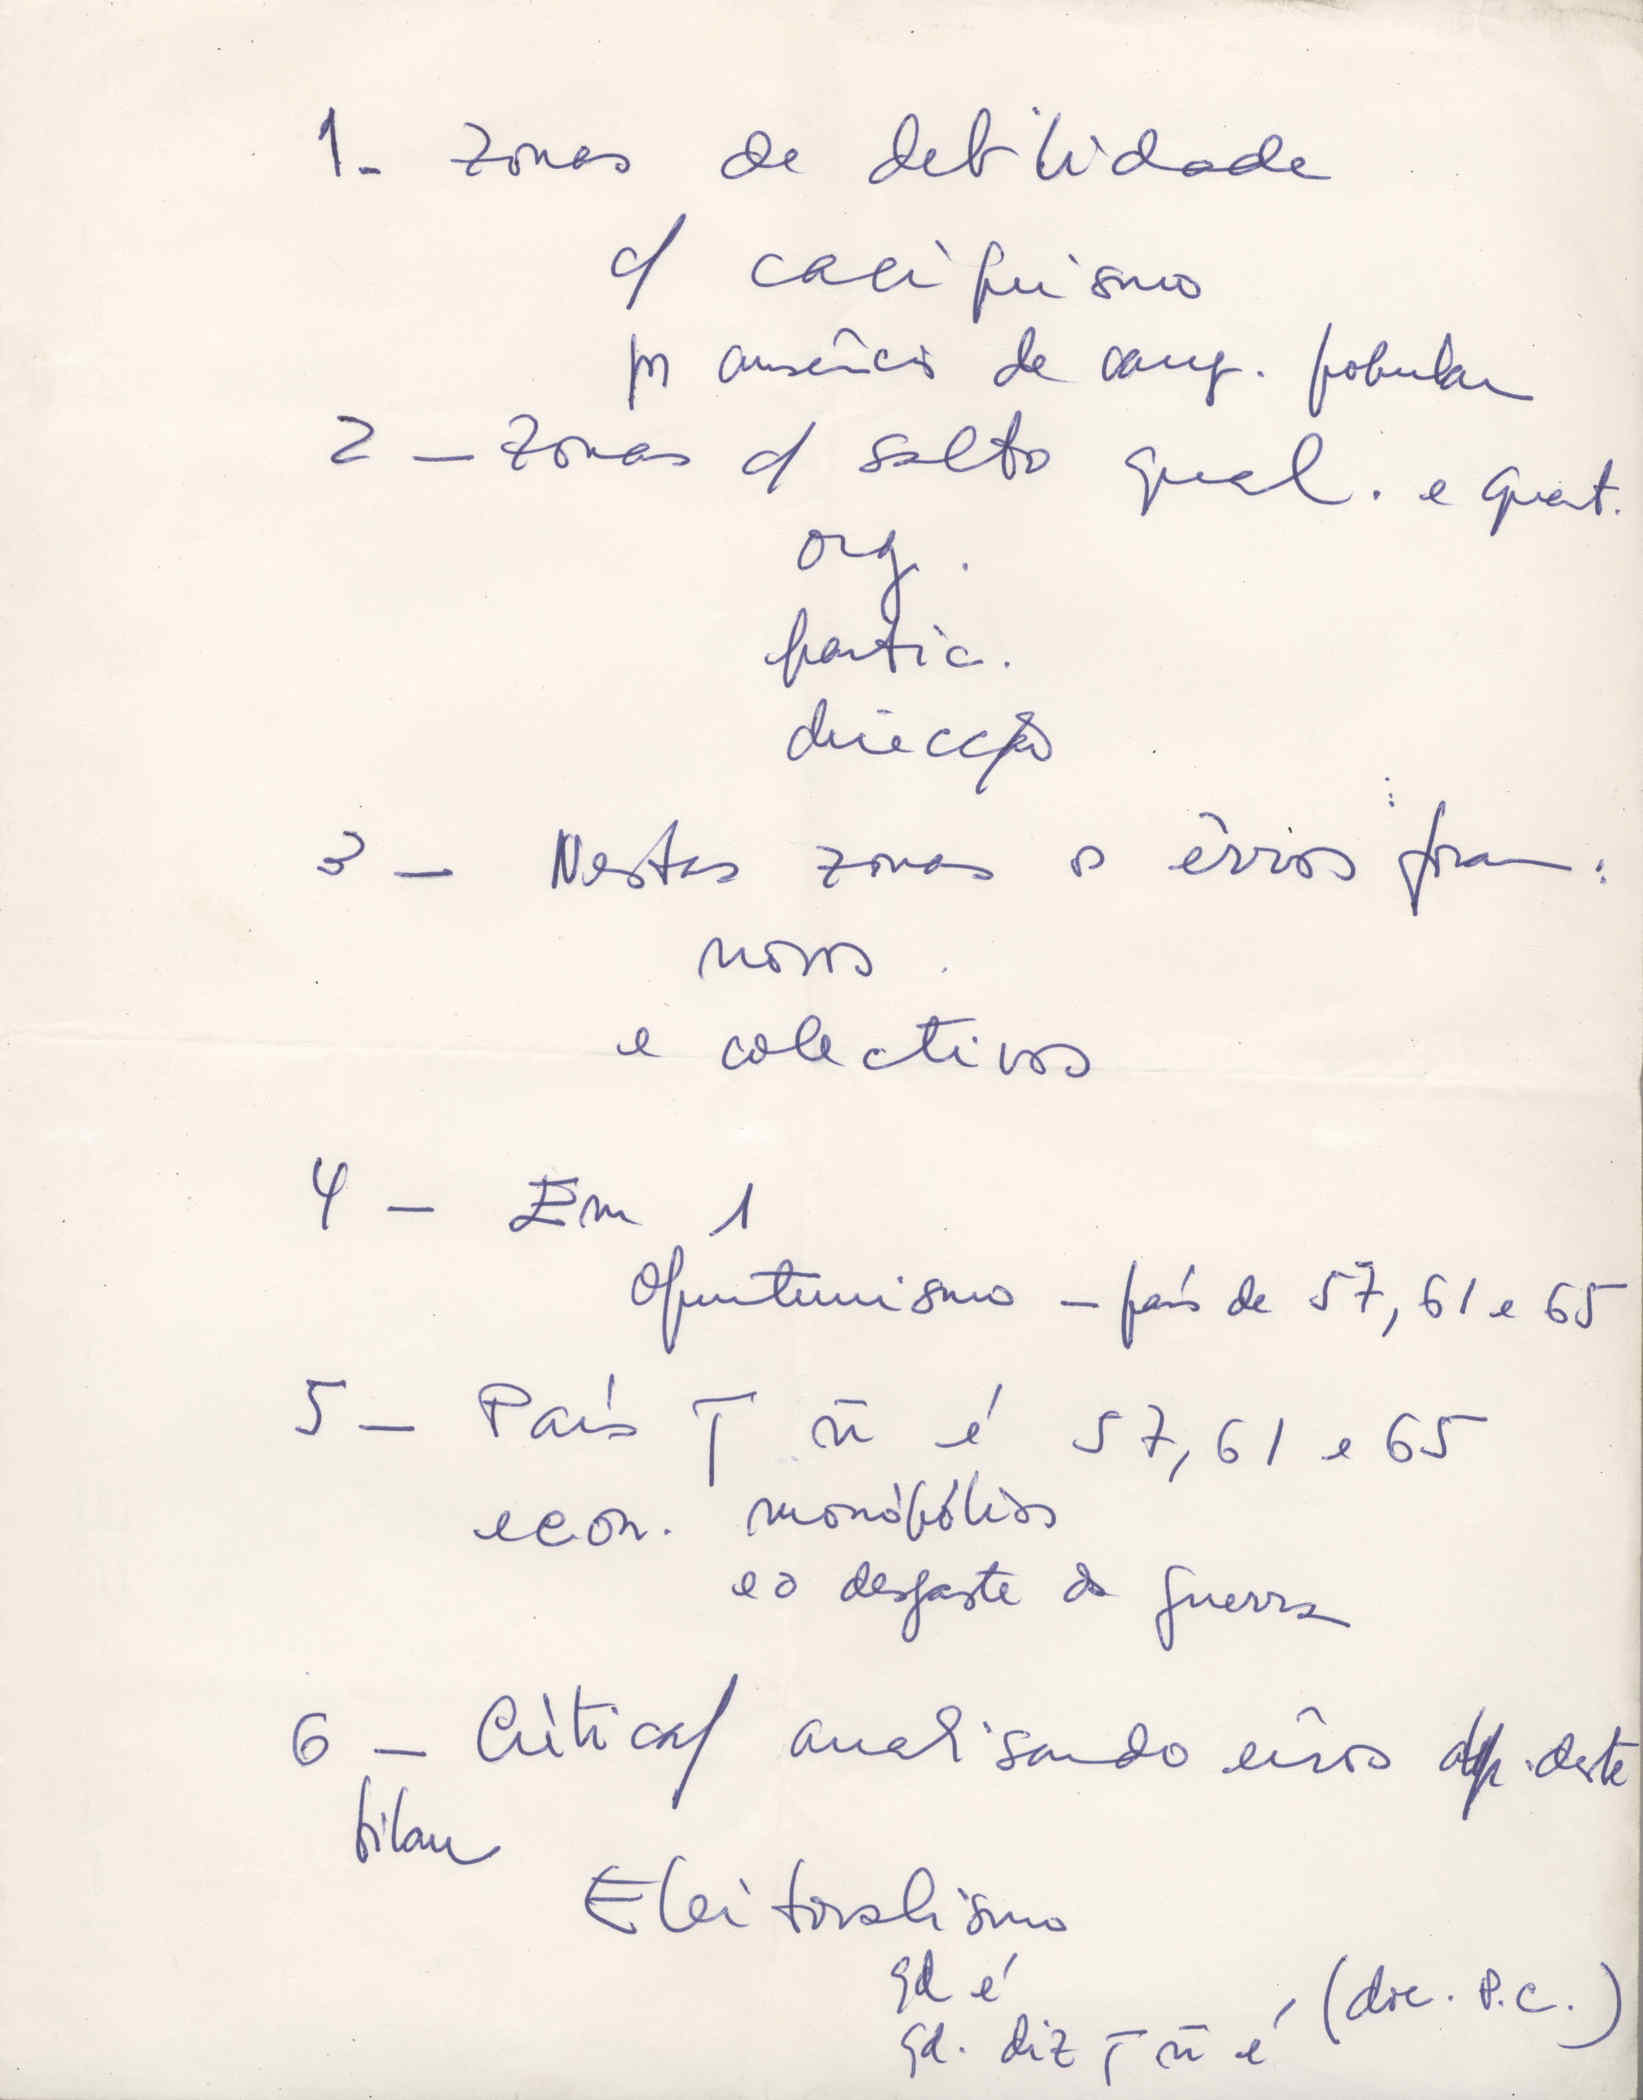 1- zonas de debilidade
c/ caciquismo
por ausência de camp. popular
2 - zonas c/ salto qual. e quant.
org.
partic.
direcção
3 - Nestas zonas os êrros foram:
novos
e colectivos
4 - Em 1
Oportunismo - país de 57, 61 e 65
5 - País T ñ é 57, 61 e 65
econ. monópólios
e o desgaste da guerra
6 - Crítica/ analisando êrros dep. deste
bilan
Eleitoralismo
qd é
qd. diz T ñ é (doc. P.C.)